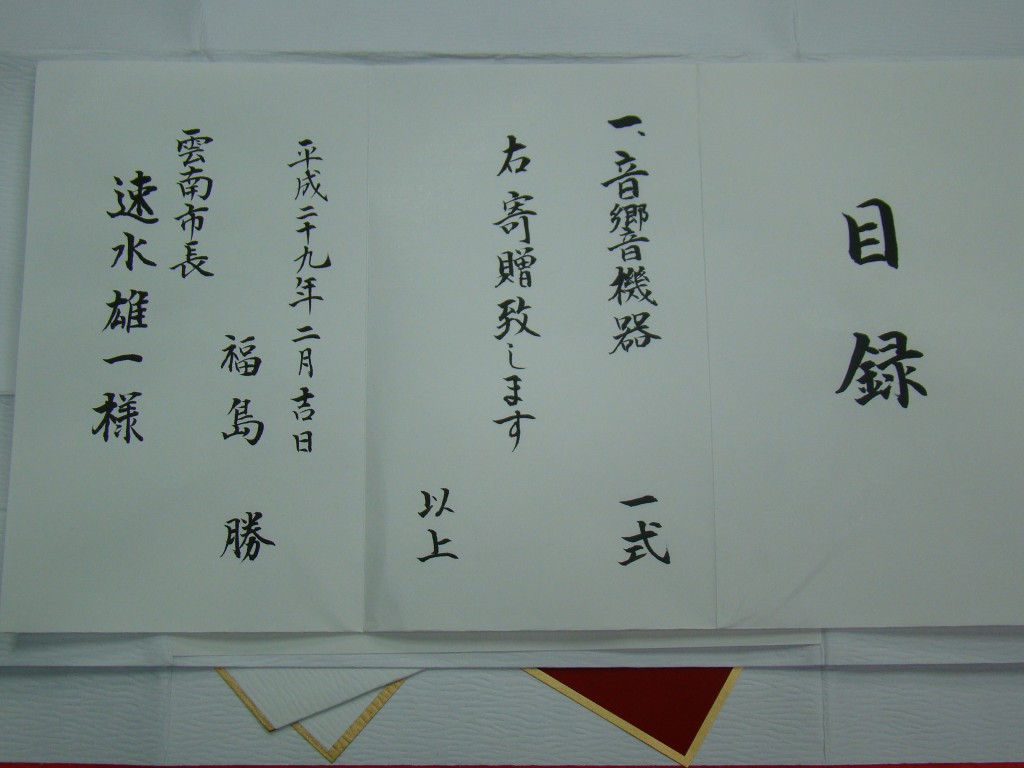 目録
一、音響機器 一式
右寄贈致します
以上
平成二十九年二月吉日
福島 勝
雲南市長
速水雄一様